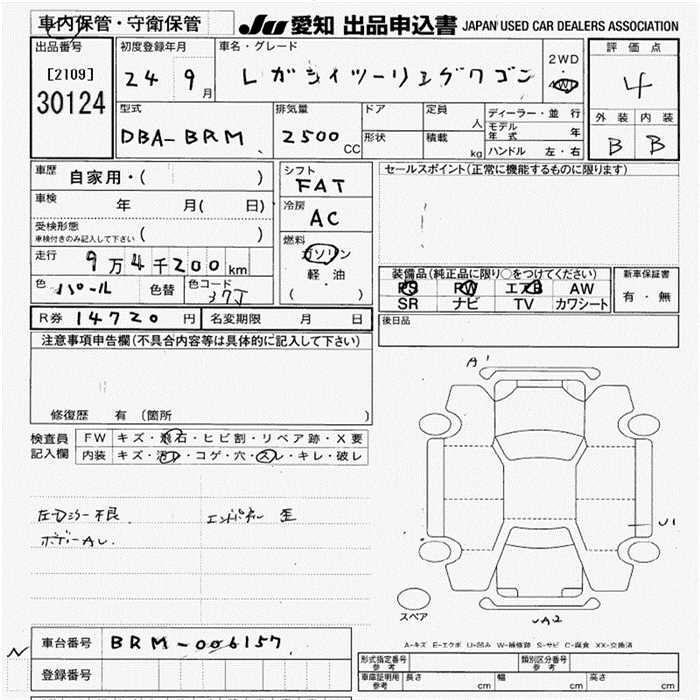 車内保管・守衛保管
JU 愛知 出品申込書 JAPAN USED CAR DEALERS ASSOCIATION
出品番号
[2109]
30124
初度登録年月
24 9月
車名・グレード
レガシィツーリングワゴン
2WD
・4WD
評価点
4
外装 内装
B B
型式
DBA-BRM
排気量
2500 CC
ドア
形状
定員 人
積載 kg
ディーラー・並行
モデル年式 年
ハンドル 左・右
車歴
自家用・( )
車検 年 月( 日)
受検形態
車検付きのみ記入して下さい ( )
走行 9万4千200km
色 パール 色替 色コード 37J
シフト
FAT
冷房
AC
燃料
ガソリン
軽・油
( )
セールスポイント(正常に機能するものに限ります)
装備品(純正品に限り○をつけてください)
PS PW エアB AW
SR ナビ TV カワシート
新車保証書
有・無
R券 14720円 名変期限 月 日
後日品
注意事項申告欄(不具合内容等は具体的に記入して下さい)
修復歴 有 (箇所 )
検査員記入欄
FW キズ・飛石・ヒビ割・リペア跡・X要
内装 キズ・汚レ・コゲ・穴・スレ・キレ・破レ
左ドアミラー不良 エンドパネル 歪
ボデーAU.
A1
U1
UA2
スペア
A-キズ E-エクボ U-凹み W-補修跡 S-サビ C-腐食 XX-交換済
N
車台番号 BRM-006157
登録番号
形式指定番号 参考 類別区分番号 参考
車庫証明用 参考 長さ cm 幅 cm 高さ cm